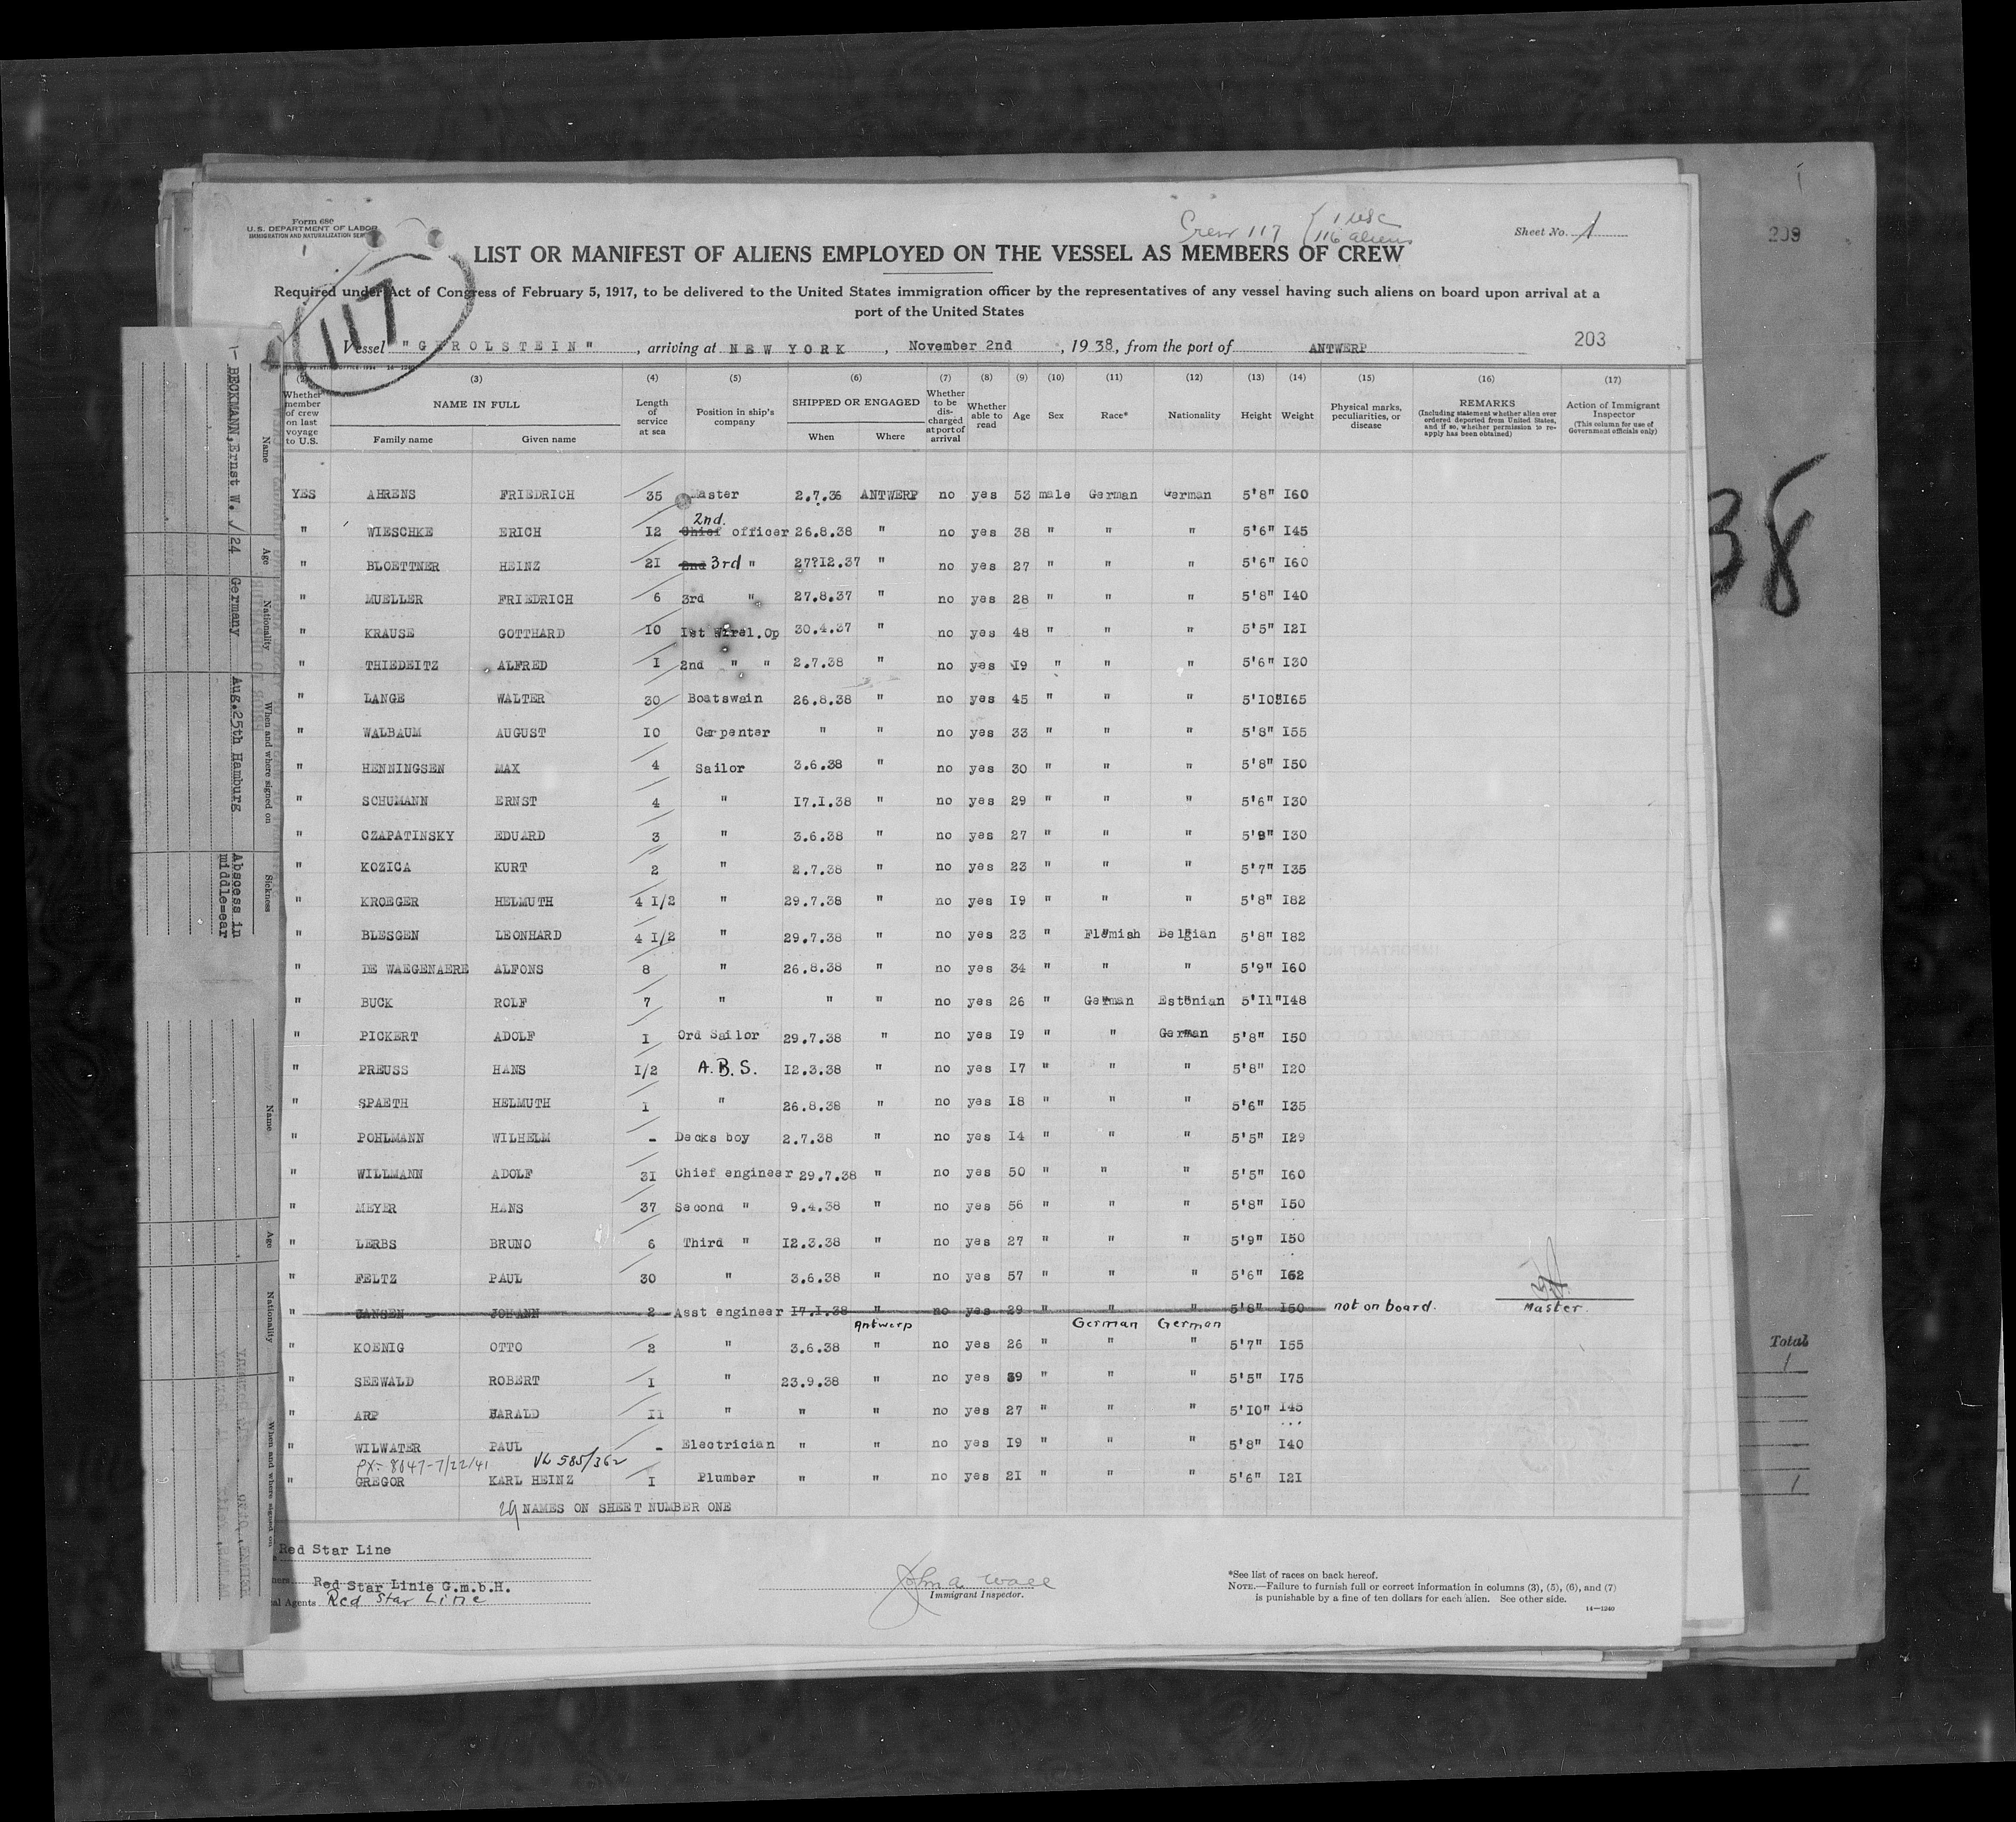 Form 680
U.S. DEPARTMENT OF LABOR
IMMIGRATION AND NATURALIZATION SER
Crew 117 { 1 USC
116 aliens
Sheet No. 1
209
LIST OR MANIFEST OF ALIENS EMPLOYED ON THE VESSEL AS MEMBERS OF CREW
Required under Act of Congress of February 5, 1917, to be delivered to the United States immigration officer by the representatives of any vessel having such aliens on board upon arrival at a
port of the United States
117
203
Vessel "GEROLSTEIN", arriving at NEW YORK, November 2nd, 1938, from the port of ANTWERP
(3) (4) (5) (6) (7) (8) (9) (10) (11) (12) (13) (14) (15) (16) (17)
Whether member of crew on last voyage to U.S. NAME IN FULL Family name Given name Length of service at sea Position in ship's company SHIPPED OR ENGAGED When Where Whether to be discharged at port of arrival Whether able to read Age Sex Race* Nationality Height Weight Physical marks, peculiarities, or disease REMARKS (Including statement whether alien ever ordered deported from United States, and if so, whether permission to re-apply has been obtained) Action of Immigrant Inspector (This column for use of Government officials only)
YES AHRENS FRIEDRICH 35 Master 2.7.36 ANTWERP no yes 53 male German German 5'8" I60
" WIESCHKE ERICH I2 Chief 2nd. officer 26.8.38 " no yes 38 " " " 5'6" I45
" BLOETTNER HEINZ 2I 2nd 3rd " 27?I2.37 " no yes 27 " " " 5'6" I60
" MUELLER FRIEDRICH 6 3rd " 27.8.37 " no yes 28 " " " 5'8" I40
" KRAUSE GOTTHARD IO Ist Wirel.Op 30.4.37 " no yes 48 " " " 5'5" I2I
" THIEDEITZ ALFRED I 2nd " " 2.7.38 " no yes I9 " " " 5'6" I30
" LANGE WALTER 30 Boatswain 26.8.38 " no yes 45 " " " 5'I0" I65
" WALBAUM AUGUST IO Carpenter " " no yes 33 " " " 5'8" I55
" HENNINGSEN MAX 4 Sailor 3.6.38 " no yes 30 " " " 5'8" I50
" SCHUMANN ERNST 4 " I7.I.38 " no yes 29 " " " 5'6" I30
" CZAPATINSKY EDUARD 3 " 3.6.38 " no yes 27 " " " 5'9" I30
" KOZICA KURT 2 " 2.7.38 " no yes 23 " " " 5'7" I35
" KROEGER HELMUTH 4 I/2 " 29.7.38 " no yes I9 " " " 5'8" I82
" BLESGEN LEONHARD 4 I/2 " 29.7.38 " no yes 23 " Flemish Belgian 5'8" I82
" DE WAEGENAERE ALFONS 8 " 26.8.38 " no yes 34 " " " 5'9" I60
" BUCK ROLF 7 " " " no yes 26 " German Estonian 5'II" I48
" PICKERT ADOLF I Ord Sailor 29.7.38 " no yes I9 " " German 5'8" I50
" PREUSS HANS I/2 A.B.S. I2.3.38 " no yes I7 " " " 5'8" I20
" SPAETH HELMUTH I " 26.8.38 " no yes I8 " " " 5'6" I35
" POHLMANN WILHELM - Decks boy 2.7.38 " no yes I4 " " " 5'5" I29
" WILLMANN ADOLF 3I Chief engineer 29.7.38 " no yes 50 " " " 5'5" I60
" MEYER HANS 37 Second " 9.4.38 " no yes 56 " " " 5'8" I50
" LERBS BRUNO 6 Third " I2.3.38 " no yes 27 " " " 5'9" I50
" FELTZ PAUL 30 " 3.6.38 " no yes 57 " " " 5'6" I62
" JANSEN JOHANN 2 Asst engineer I7.I.38 " no yes 29 " " " 5'8" I50 not on board. Master.
Antwerp German German
" KOENIG OTTO 2 " 3.6.38 " no yes 26 " " " 5'7" I55
" SEEWALD ROBERT I " 23.9.38 " no yes 39 " " " 5'5" I75
" ARP HARALD II " " " no yes 27 " " " 5'IO" I45
" WILWATER PAUL - Electrician " " no yes I9 " " " 5'8" I40
PX- 8047-7/22/41 VL 585/362
" GREGOR KARL HEINZ I Plumber " " no yes 2I " " " 5'6" I2I
29 NAMES ON SHEET NUMBER ONE
Red Star Line
Red Star Linie G.m.b.H.
al Agents Red Star Line
John A. Wace
Immigrant Inspector.
*See list of races on back hereof.
NOTE.—Failure to furnish full or correct information in columns (3), (5), (6), and (7)
is punishable by a fine of ten dollars for each alien. See other side.
14—1240
Name Age Nationality When and where signed on Sickness
1- BECKMANN, Ernst W. / 24 Germany Aug.25th Hamburg Abscess in
middle=ear
Name Age Nationality When and where signed on
38
Total
1
1